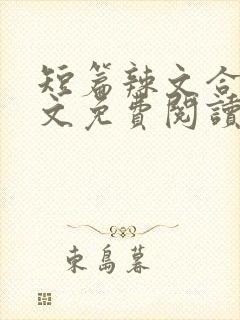 短篇辣文合
文免費閱讀
東島暮